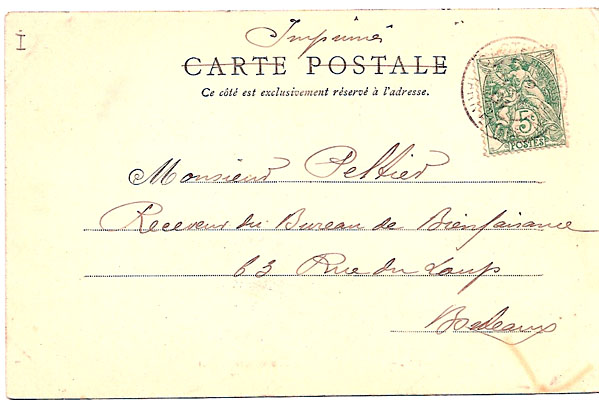 I
Imprimés
CARTE POSTALE
Ce côté est exclusivement réservé à l'adresse.
5c
POSTES
Monsieur Peltier
Receveur du Bureau de Bienfaisance
63 Rue du Loup
Bordeaux